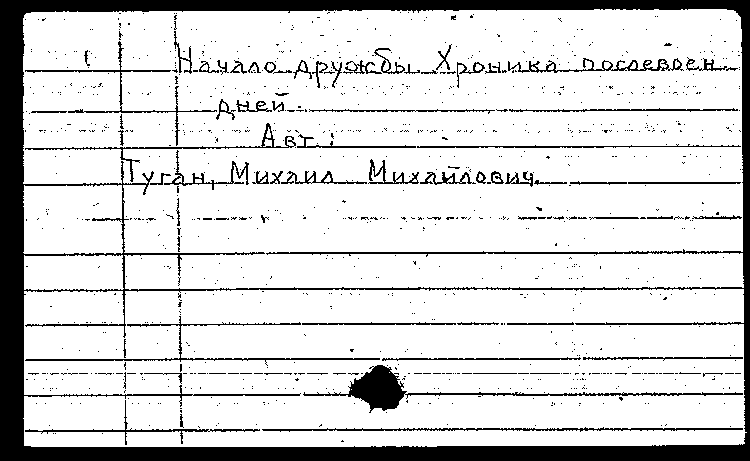 Начало дружбы Хроника послевоен.
дней.
Авт.:
Туган, Михаил Михайлович.